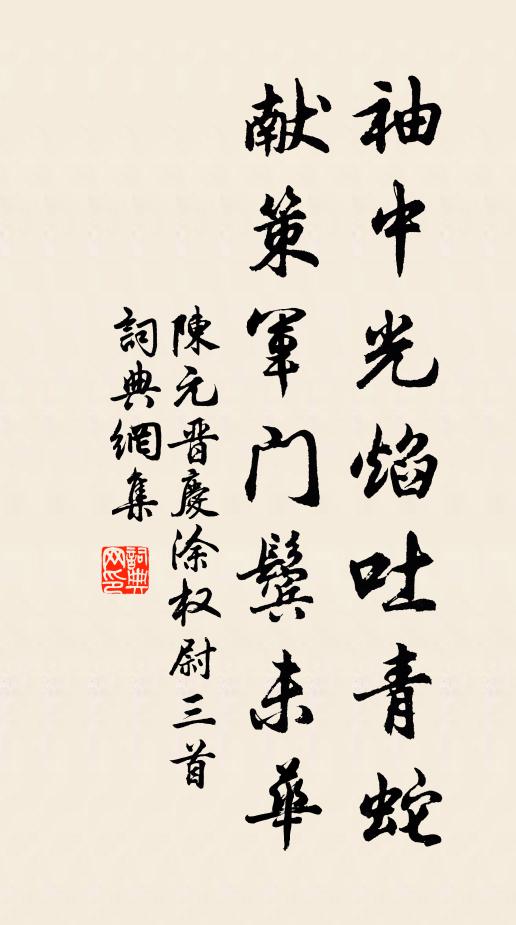 袖中光焰吐青蛇
献策军门鬓未华
陳元晋慶涂权尉三首
詞典網集
詞典
网印